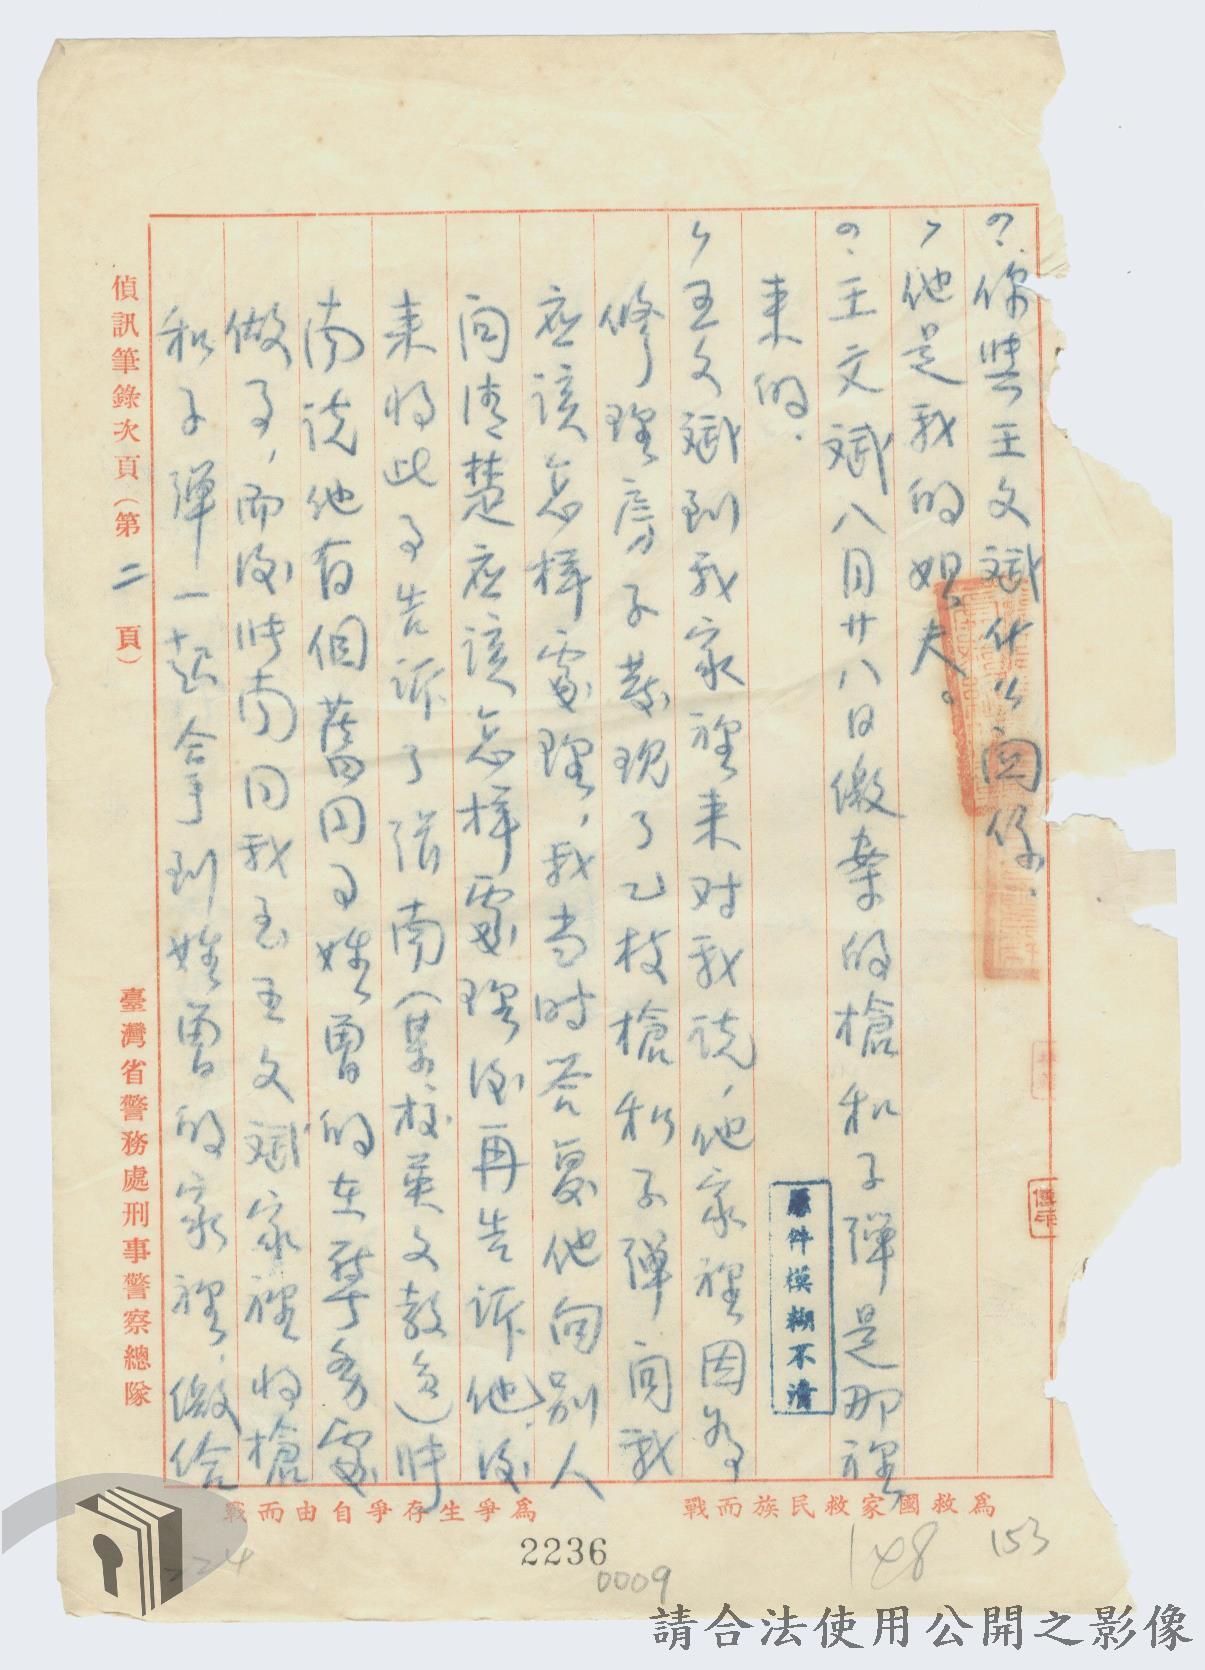 ？、你與王文斌什么関係．
〉他是我的姐夫。
？、王文斌八月廿八日繳案的槍和子弹是那裡
来的．
〉王文斌到我家裡来対我説，他家裡因为
修理房子發現了乙枝槍和子弹问我
应该怎樣處理，我当时答复他向别人
问清楚应该怎样處理後再告诉他，後
来将此事告诉了張南（某校英文教道）時
南説他有個舊同事姓曾的在
做事，而後時南同我至王文斌家裡将槍
和子弹一起拿到姓曾的家裡，繳给
原件模糊不清
偵訊筆錄次頁（第二頁）
臺灣省警務處刑事警察總隊
為救國家救民族而戰
為爭生存爭自由而戰
2236
0009
148
153
224
請合法使用公開之影像